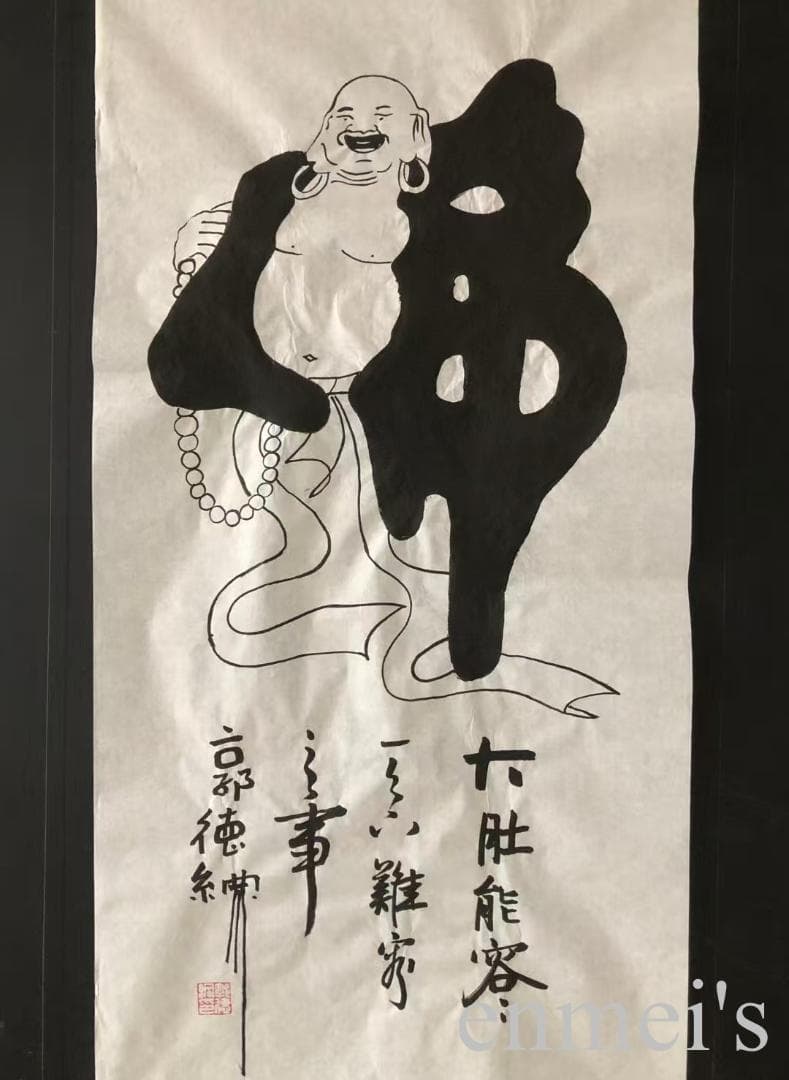 大肚能容〻
天下難容
之事
郭德綱
enmei's